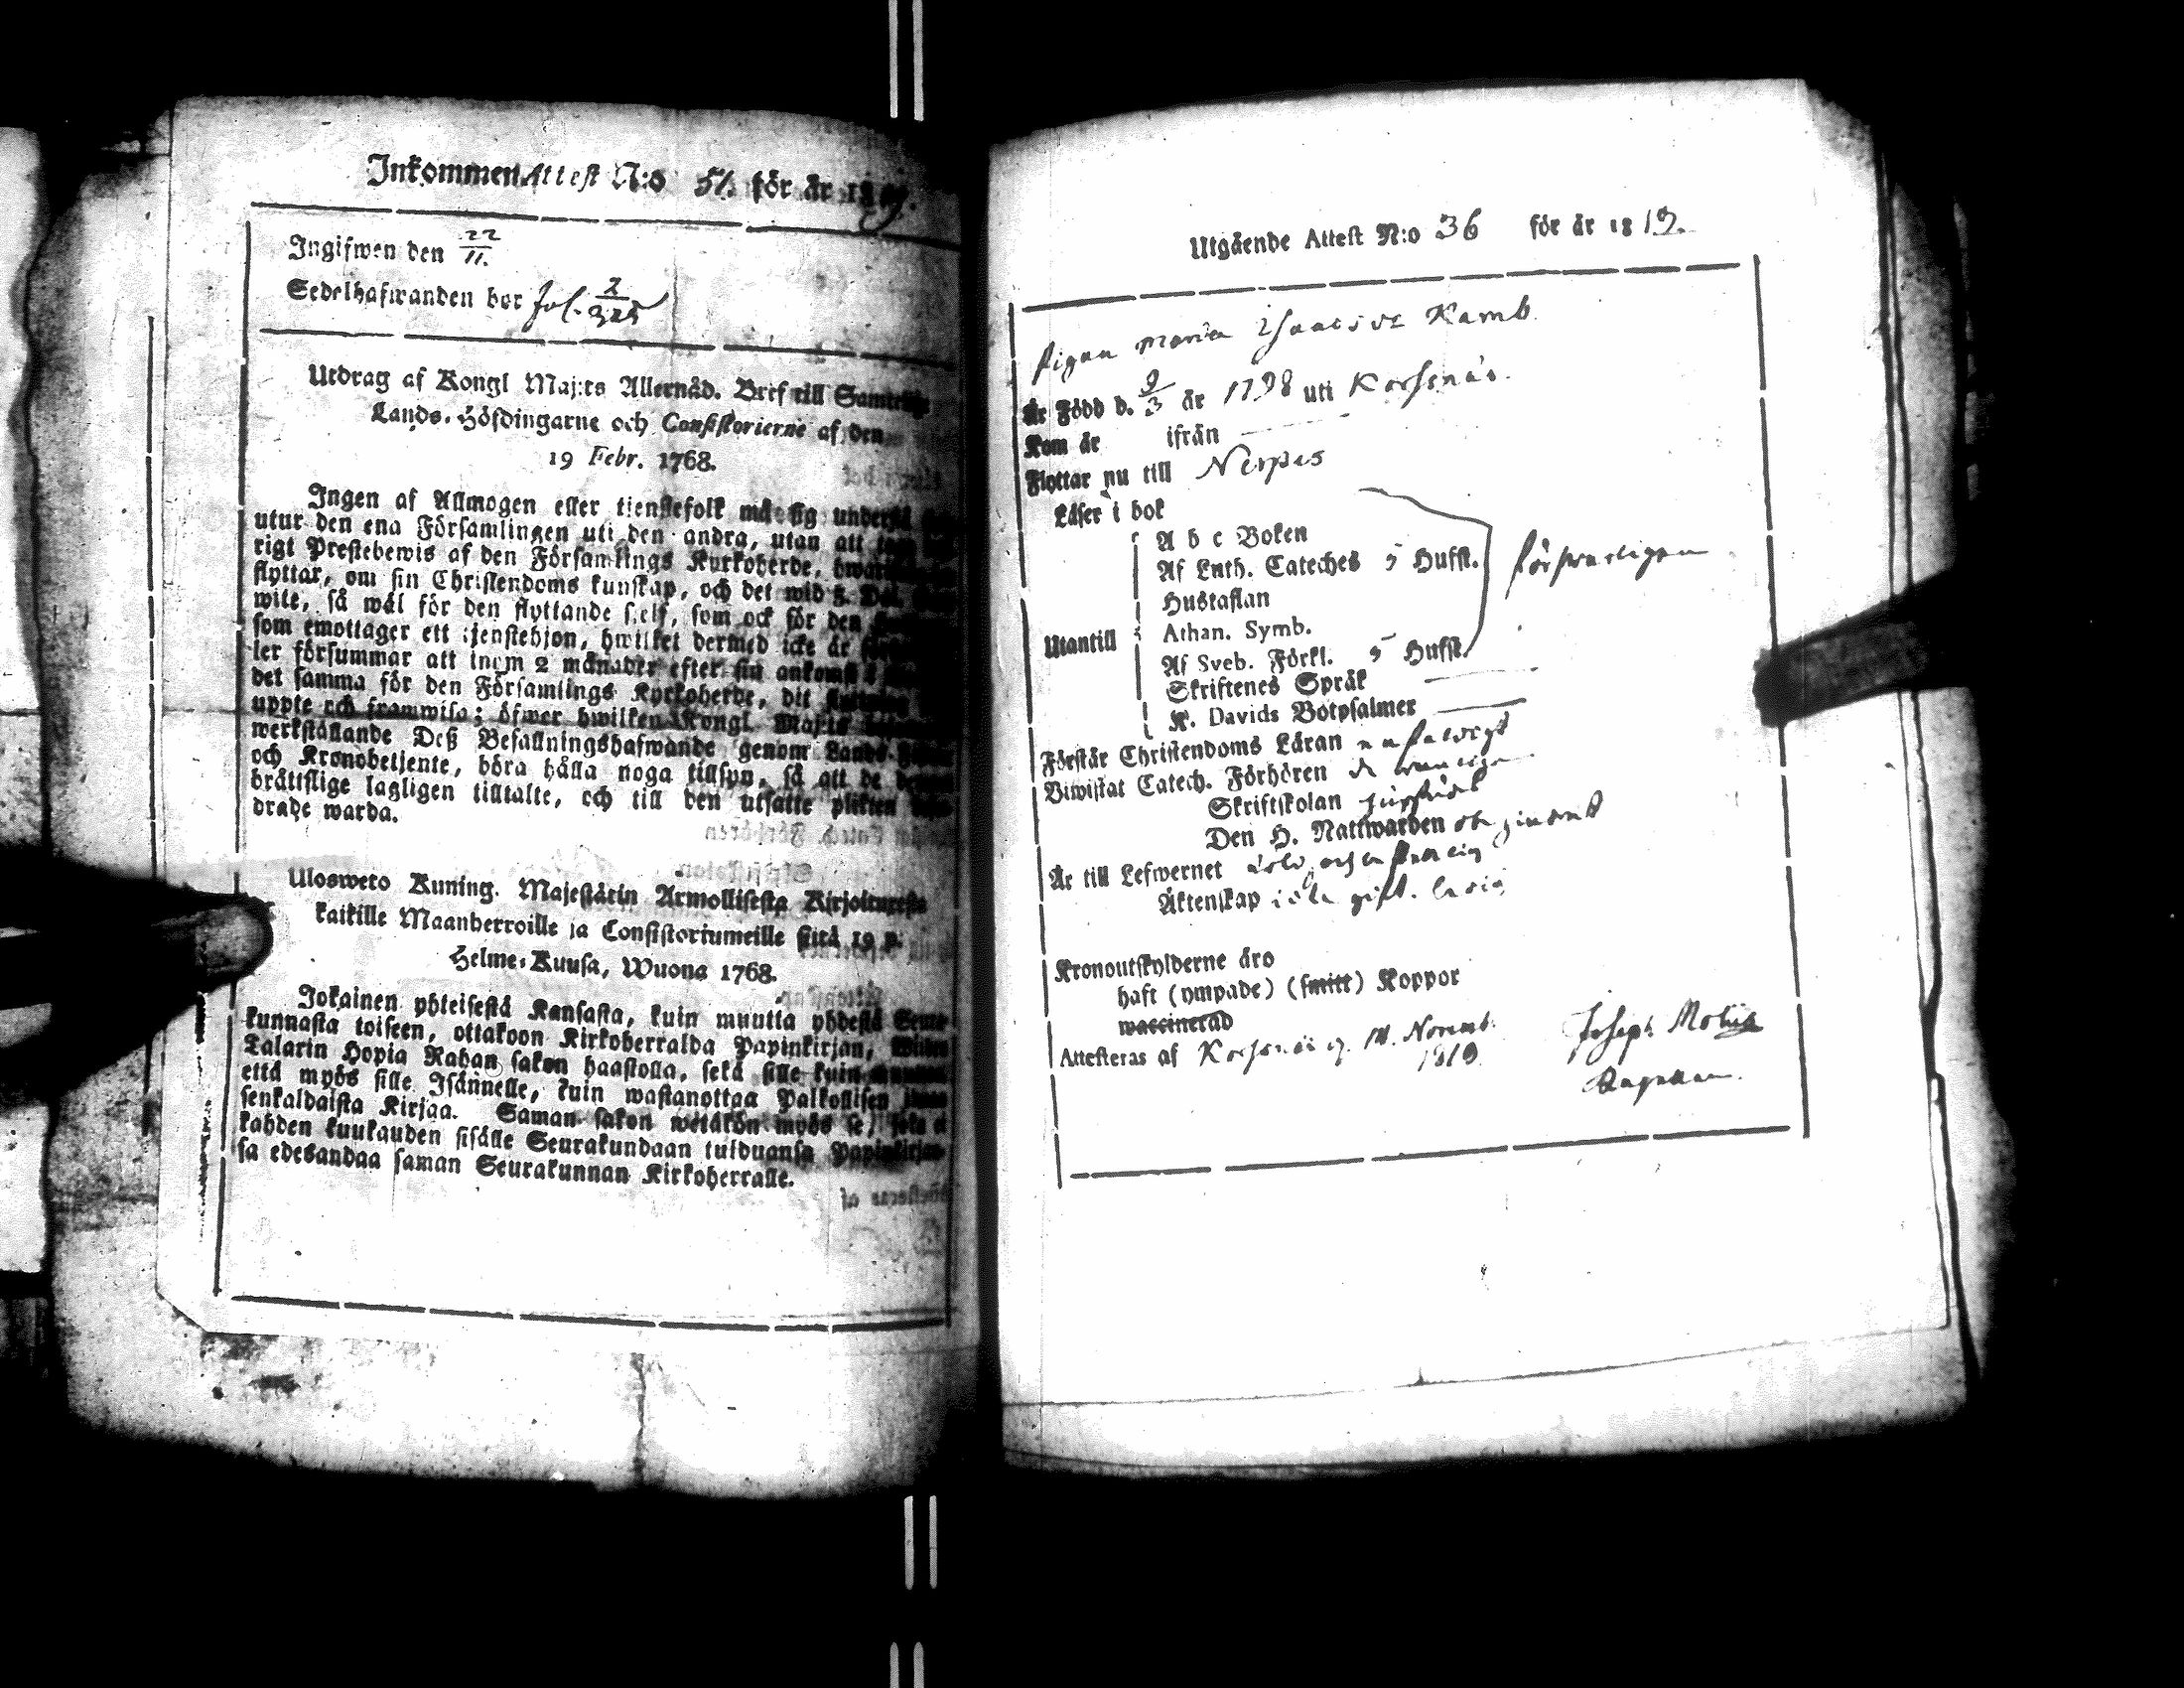 Inkommen Attest N:o 51. för år 1819.
Ingifwen den 22/11.
Sedelhafwanden bor fol. 2/325
Utdrag af Kongl Maj:ts Allernåd. Bref till Samtelige
Lands-Höfdingarne och Consistorierne af den
19 Febr. 1768.
Ingen af Allmogen eller tjenstefolk må sig understå
utur den ena Församlingen uti den andra, utan att
rigt Prestebewis af den Församlings Kyrkoherde,
flyttar, om sin Christendoms kunskap, och det wid 5. Dal.
wite, så wäl för den flyttande sjelf, som ock för den
som emottager ett tjenstehjon, hwilket dermed icke är
ler försummar att inom 2 månader efter sin ankomst
det samma för den Församlings Kyrkoherde, dit
uppte och framwisa; öfwer hwilken Kongl. Maj:ts
werkställande Deß Befallningshafwande genom Lands-
och Kronobetjente, böra hålla noga tillsyn, så att de
bråttslige lagligen tilltalte, och till den utsatte plikten
drade warda.
Uloswето Kuning. Majestätin Armollisesta Kirjoituxesta
kaikille Maanherroille ja Consistoriumeille siitä 19 p.
Helme-Kuusa, Wuona 1768.
Jokainen yhteisestä Kansasta, kuin muutta yhdestä Seura-
kunnasta toiseen, ottakoon Kirkoherralda Papinkirjan,
Talarin Hopia Rahan sakon haastolla, sekä sille kuin
että myös sille Isännelle, kuin wastanottaa Palkollisen
senkaldaista Kirjaa. Saman sakon wetäkön myös se, joka ei
kahden kuukauden sisälle Seurakundaan tulduansa Papinkirjan-
sa edesandaa saman Seurakunnan Kirkoherralle.
Utgående Attest N:o 36 för år 1819.
Pigan Maria Isaacsdr Kamb
Är Född d. 9/3 år 1798 uti Korsnäs.
Kom år ifrån
Flyttar nu till Nerpes
Läser i bok
A b c Boken
Af Luth. Cateches 5 Hufst.
Hustaflan
Utantill
Athan. Symb.
Af Sveb. Förkl. 5 Hufst.
försvarligen
Skriftenes Språk
K. Davids Botpsalmer
Förstår Christendoms Läran
Biwistat Catech. Förhören
Skriftskolan
Den H. Nattwarden
Är till Lefwernet
Äktenskap icke gift. ledig
Kronoutskylderne äro
haft (ympade) (smitt) Koppor
waccinerad
Attesteras af Korsnäs d. 14. Novemb. 1819.
Joseph Molin